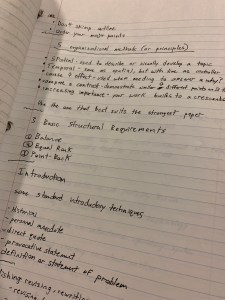 • Don't skimp outline
• Order your major points
5 organizational methods (or principles)
• Spatial - used to describe or visually develop a topic
• Temporal - same as spatial, but with time as controller
• Cause & effect - used when needing to answer a "why?"
• compare & contrast - demonstrate various different points
• increasing importance - your work builds to a crescendo
Use the one that best suits the strongest paper
3 Basic Structural Requirements
① Balance
② Equal Rank
③ Point-Rank
Introduction
some standard introductory techniques
- historical
- personal anecdote
- direct quote
- provocative statement
- definition or statement of problem
revising - rewriting
- revising